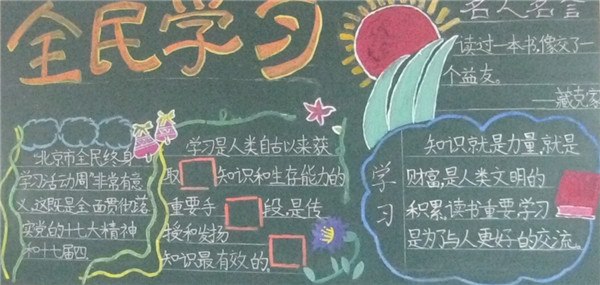 全民学习
名人名言
读过一本书,像交了一
个益友。
——臧克家
北京市全民终身
学习活动周"非常有意
义,这既是全面贯彻落
实党的十七大精神
和十七届四
学习是人类自古以来获
取 知识和生存能力的
重要手 段,是传
授和发扬
知识最有效的。
学习
知识就是力量,就是
财富,是人类文明的
积累,读书重要,学习
是为了与人更好的交流。